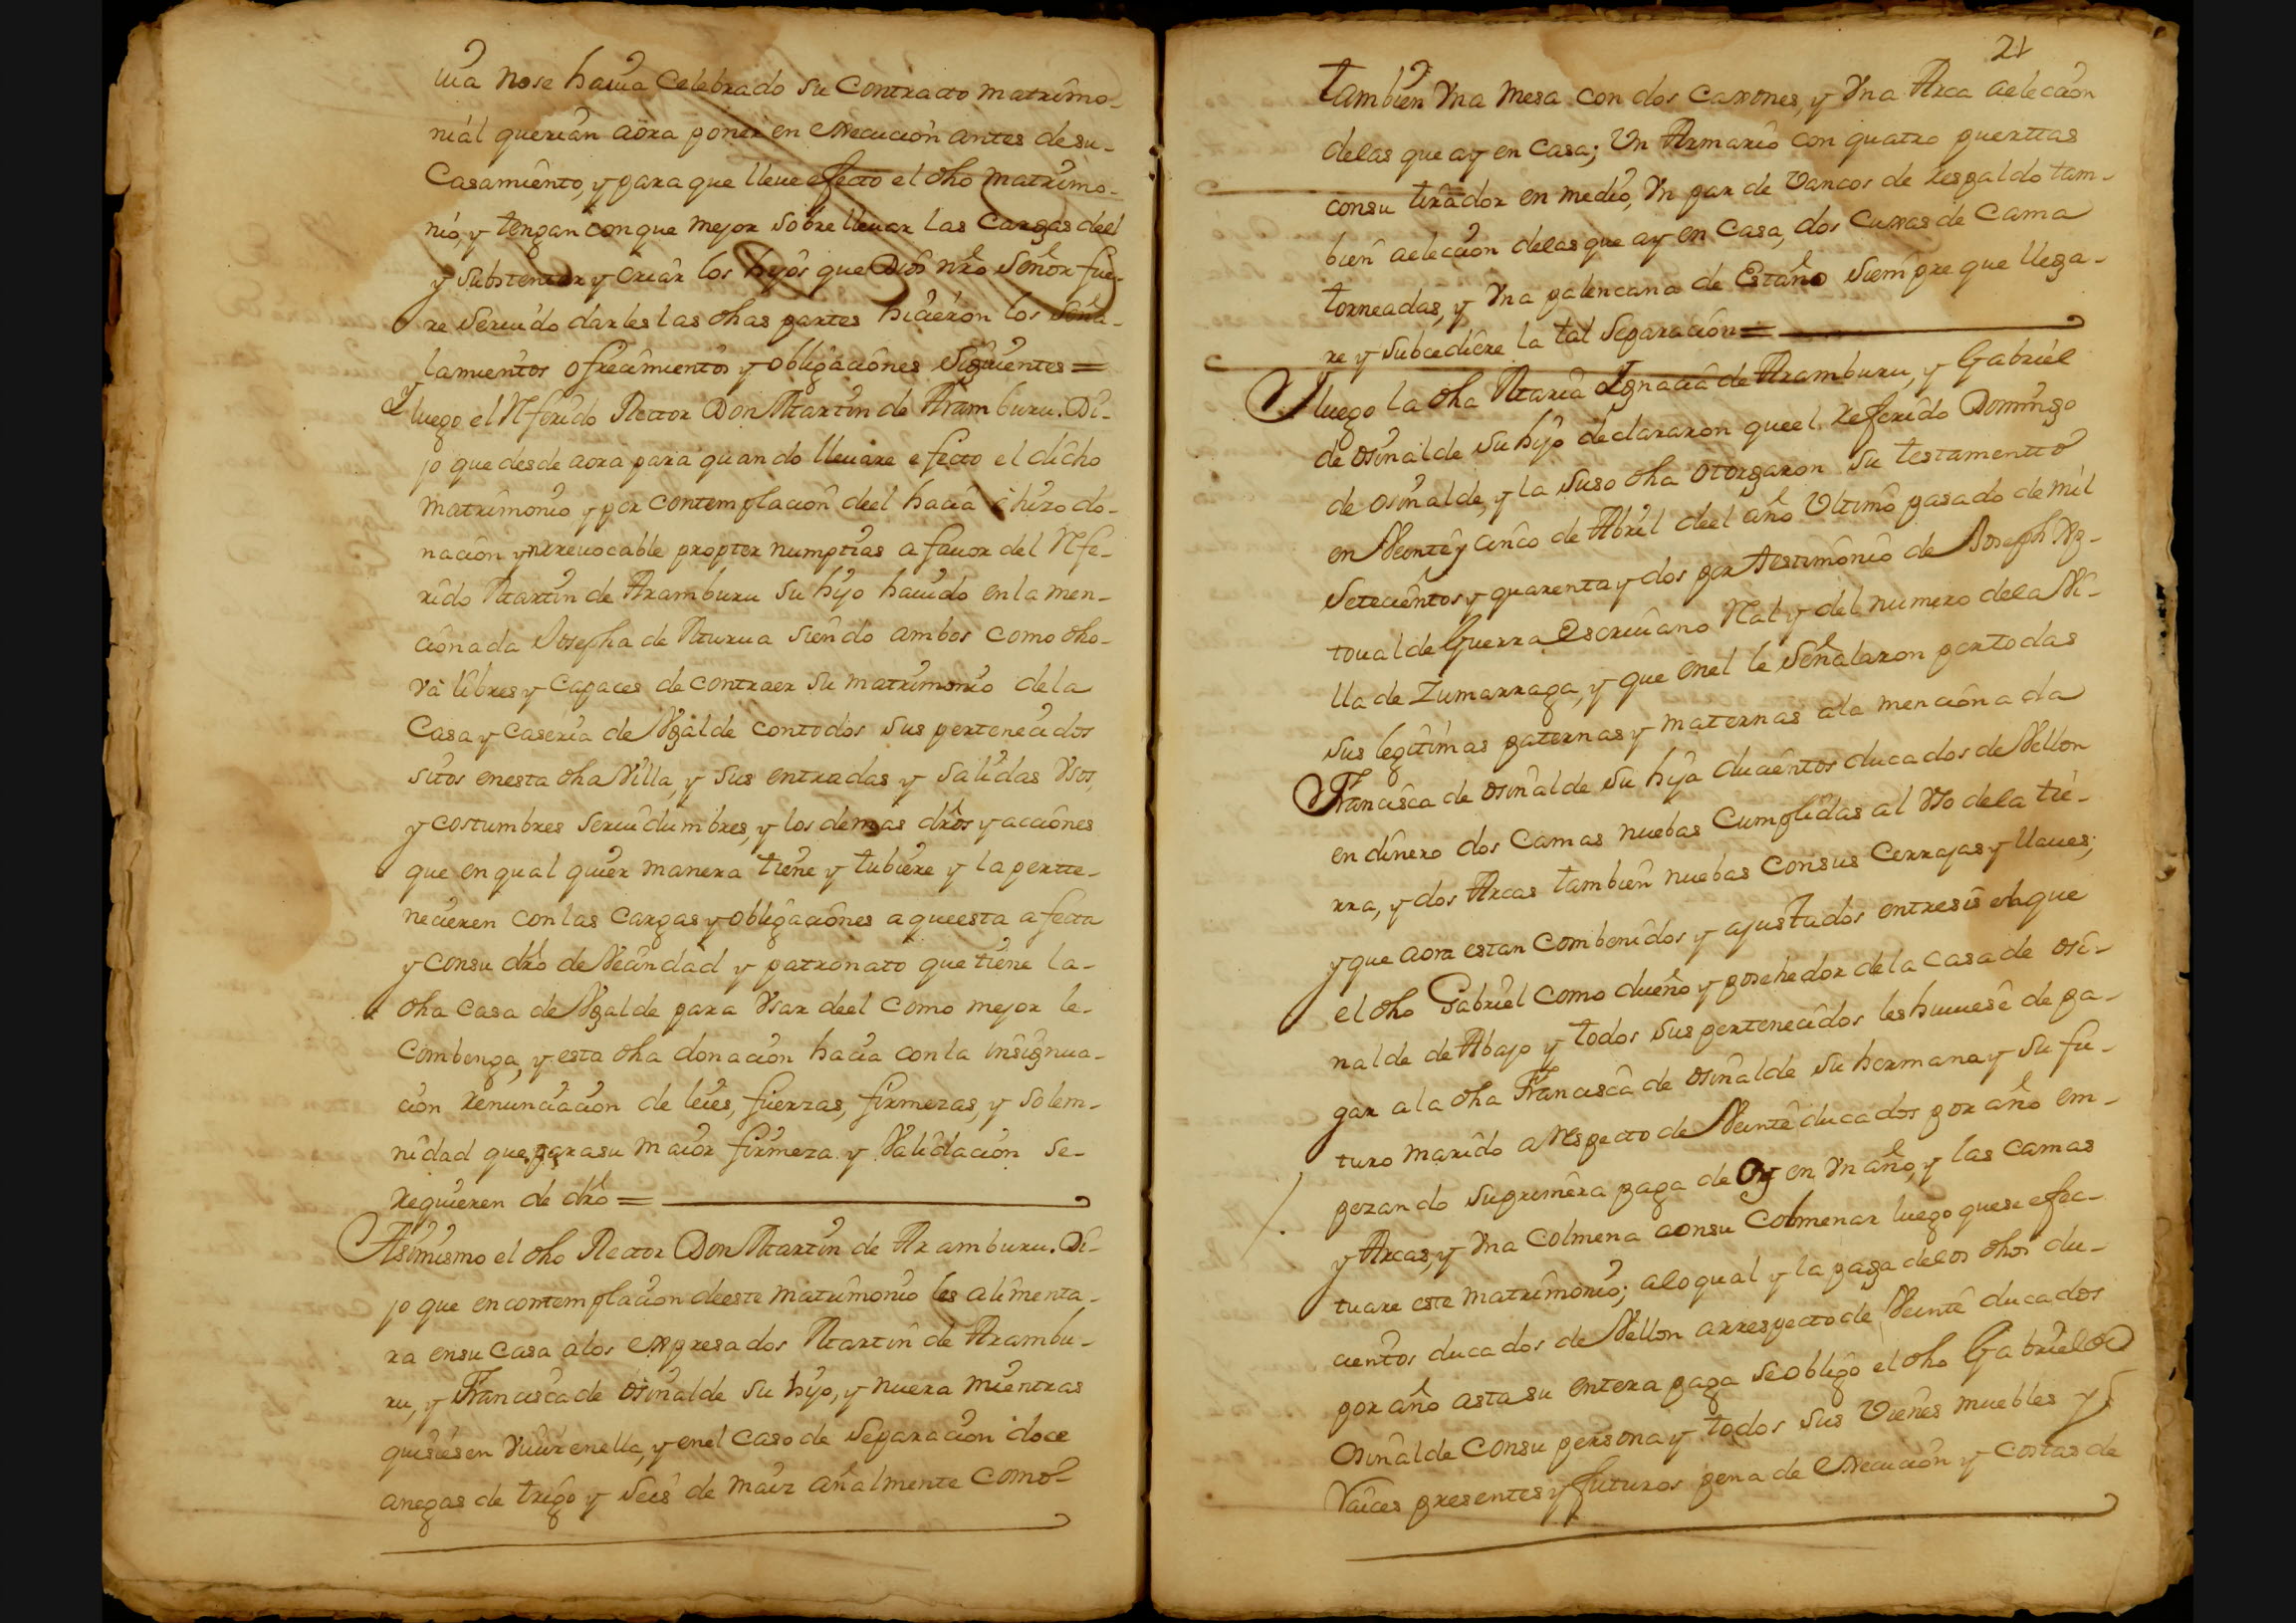 uia nose hauia Celebrado su Contracto matrimo-
niál querian aora poner en execucion antes de su-
Casamiento, y para que lleue efecto el dho matrimo-
nio, y tengan con que mejor sobre lleuar las Cargas deel
y substentar y criar los hijos que Dios nro Señor fue-
re Seruido darles las dhas partes hicieron los Seña-
lamientos ofrecimientos y obligaciones siguientes =
Y luego el Referido Rector Don Martin de Aramburu. Di-
jo que desde aora para quando lleuare efecto el dicho
matrimonio y por contemplacion deel hacia è hizo do-
nacion ynrreuocable propter numptias a fauor del Refe-
rido Martin de Aramburu su hijo hauido en la men-
cionada Josepha de Muruа siendo ambos como dho-
va libres y Capaces de contraer su matrimonio de la
Casa y Caseria de Ugalde contodos sus pertenecidos
sitos enesta dha Villa, y sus entradas y salidas Vsos,
y costumbres seruidumbres, y los demas dros y acciones
que en qual quier manera tiene y tubiere y la perte-
necieren con las Cargas y obligaciones a queesta afecta
y consu dro de Vecindad y patronato que tiene la-
dha Casa de Ugalde para Vsar deel como mejor le-
Combenga, y esta dha donacion hacia con la insignua-
cion Renunciacion de leies, fuerzas, firmezas, y solem-
nidad que para su maior firmeza y Validacion se-
Requieren de dro =
Asimismo el dho Rector Don Martin de Aramburu. Di-
jo que en contemplacion deeste matrimonio les alimenta-
ra ensu Casa alos expresados Martin de Arambu-
ru, y Francisca de Osinalde su hijo, y nuera mientras
quisiesen Viuir enella, y enel Caso de Separacion doce
anegas de trigo y seis de maiz añalmente Como
21
tambien Vna mesa con dos Caxones, y Vna Arca aeleccion
delas que ay en Casa; Un Armario con quatro puerttas
consu tirador en medio, Vn par de Vancos de respaldo tam-
bien aeleccion delas que ay en Casa, dos Cuxas de Cama
torneadas, y Vna palencana de Estaño siempre que llega-
re y subcediere la tal Separacion =
Y luego la dha Maria Ignacia de Aramburu, y Gabriel
de Osinalde su hijo declararon queel Referido Domingo
de Osinalde, y la suso dha otorgaron su testamentto
en Veinte y cinco de Abril deel año Vltimo pasado de mil
Setecientos y quarenta y dos por testimonio de Joseph Yg-
toual de Guerra Escriuano Ral y del numero dela Vi-
lla de Zumarraga, y que enel le Señalaron portodas
sus legitimas paternas y maternas ala mencionada
Francisca de Osinalde su hija ducientos ducados de Vellon
en dinero dos Camas nuebas Cumplidas al Vso dela tie-
rra, y dos Arcas tambien nuebas consus Cerrajas y llaues;
y que aora estan Combenidos y ajustados entresi enque
el dho Gabriel como dueño y posehedor dela Casa de Osi-
nalde de Abajo y todos sus pertenecidos les huuiese de pa-
gar ala dha Francisca de Osinalde su hermana y su fu-
turo marido a respecto de Veinte ducados por año em-
pezando suprimera paga de Oy en Vn año, y las Camas
y Arcas, y Vna Colmena consu Colmenar luego quese efec-
tuare este matrimonio; aloqual y la paga delos dhos du-
cientos ducados de Vellon arrespecto de Veinte ducados
por año asta su entera paga seobligò el dho Gabriel de
Osinalde Consu persona y todos sus Vienes muebles y
Raices presentes y futuros pena de execucion y costas de